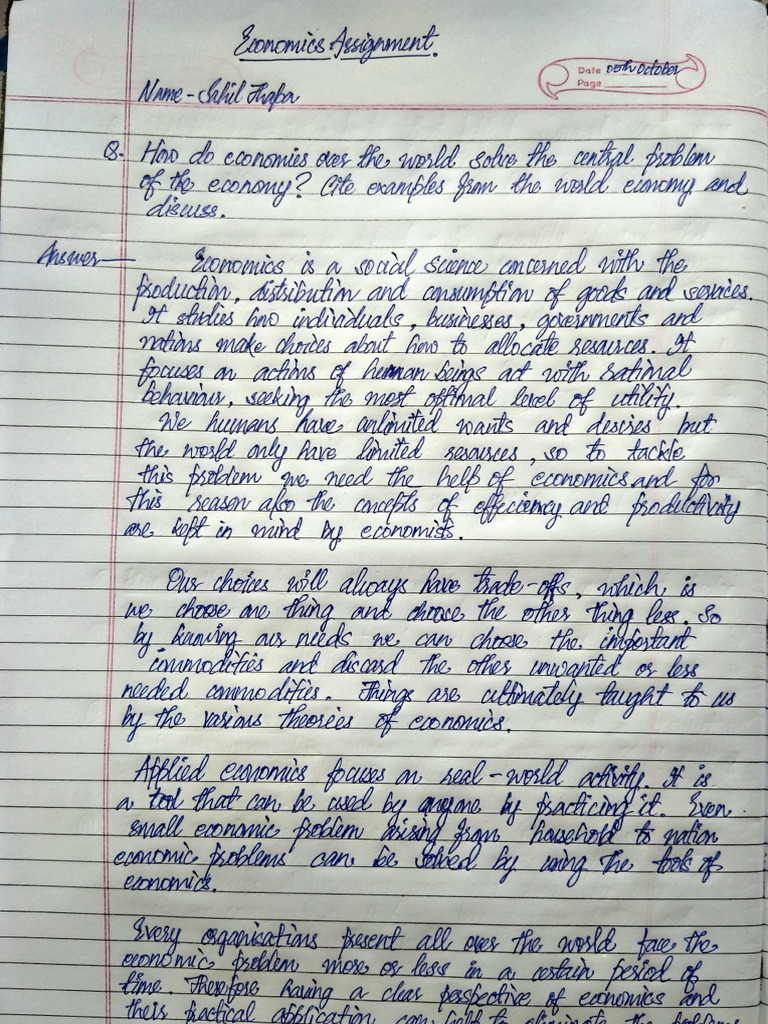 Economics Assignment.
Date 05th October
Page
Name - Sahil Thapa
Q. How do economies over the world solve the central problem
of the economy? Cite examples from the world economy and
discuss.
Answer — Economics is a social science concerned with the
production, distribution and consumption of goods and services.
It studies how individuals, businesses, governments and
nations make choices about how to allocate resources. It
focuses on actions of human beings act with rational
behaviour, seeking the most optimal level of utility.
We humans have unlimited wants and desires but
the world only have limited resources, so to tackle
this problem we need the help of economics and for
this reason also the concepts of efficiency and productivity
are kept in mind by economists.
Our choices will always have trade-offs, which is
we choose one thing and choose the other thing less. So
by knowing our needs we can choose the important
commodities and discard the other unwanted or less
needed commodities. Things are ultimately taught to us
by the various theories of economics.
Applied economics focuses on real-world activity. It is
a tool that can be used by anyone by practicing it. Even
small economic problem arising from household to nation
economic problems can be solved by using the tools of
economics.
Every organisations present all over the world face the
economic problem more or less in a certain period of
time. Therefore having a clear perspective of economics and
their practical application can help to eliminate the problems